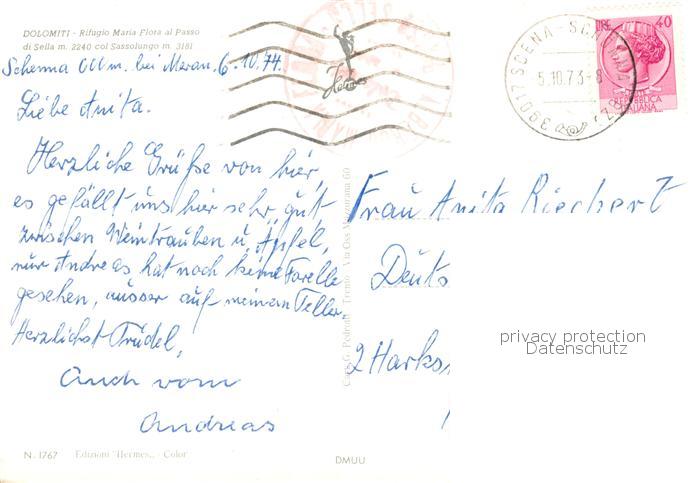 DOLOMITI - Rifugio Maria Flora al Passo
di Sella m. 2240 col Sassolungo m. 3181
Schenna 600 m. bei Meran. 6.10.74.
Liebe Anita.
Herzliche Grüße von hier,
es gefällt uns hier sehr gut
zwischen Weintrauben u. Äpfel,
nur Andreas hat noch keine Forelle
gesehen, ausser auf meinen Teller.
Herzlichst Trüdel,
Auch vom
Andreas
N. 1767 Edizioni "Hermes„ - Color
DMUU
Hermes
39017 SCENA - SCHENNA
5.10.73-8
(BZ)
LIRE 40
REPUBBLICA
ITALIANA
G. Pedrotti - Trento - Via Oss Mazzurana 60
Frau Anita Riechert
Deuts
2 Harks
privacy protection
Datenschutz